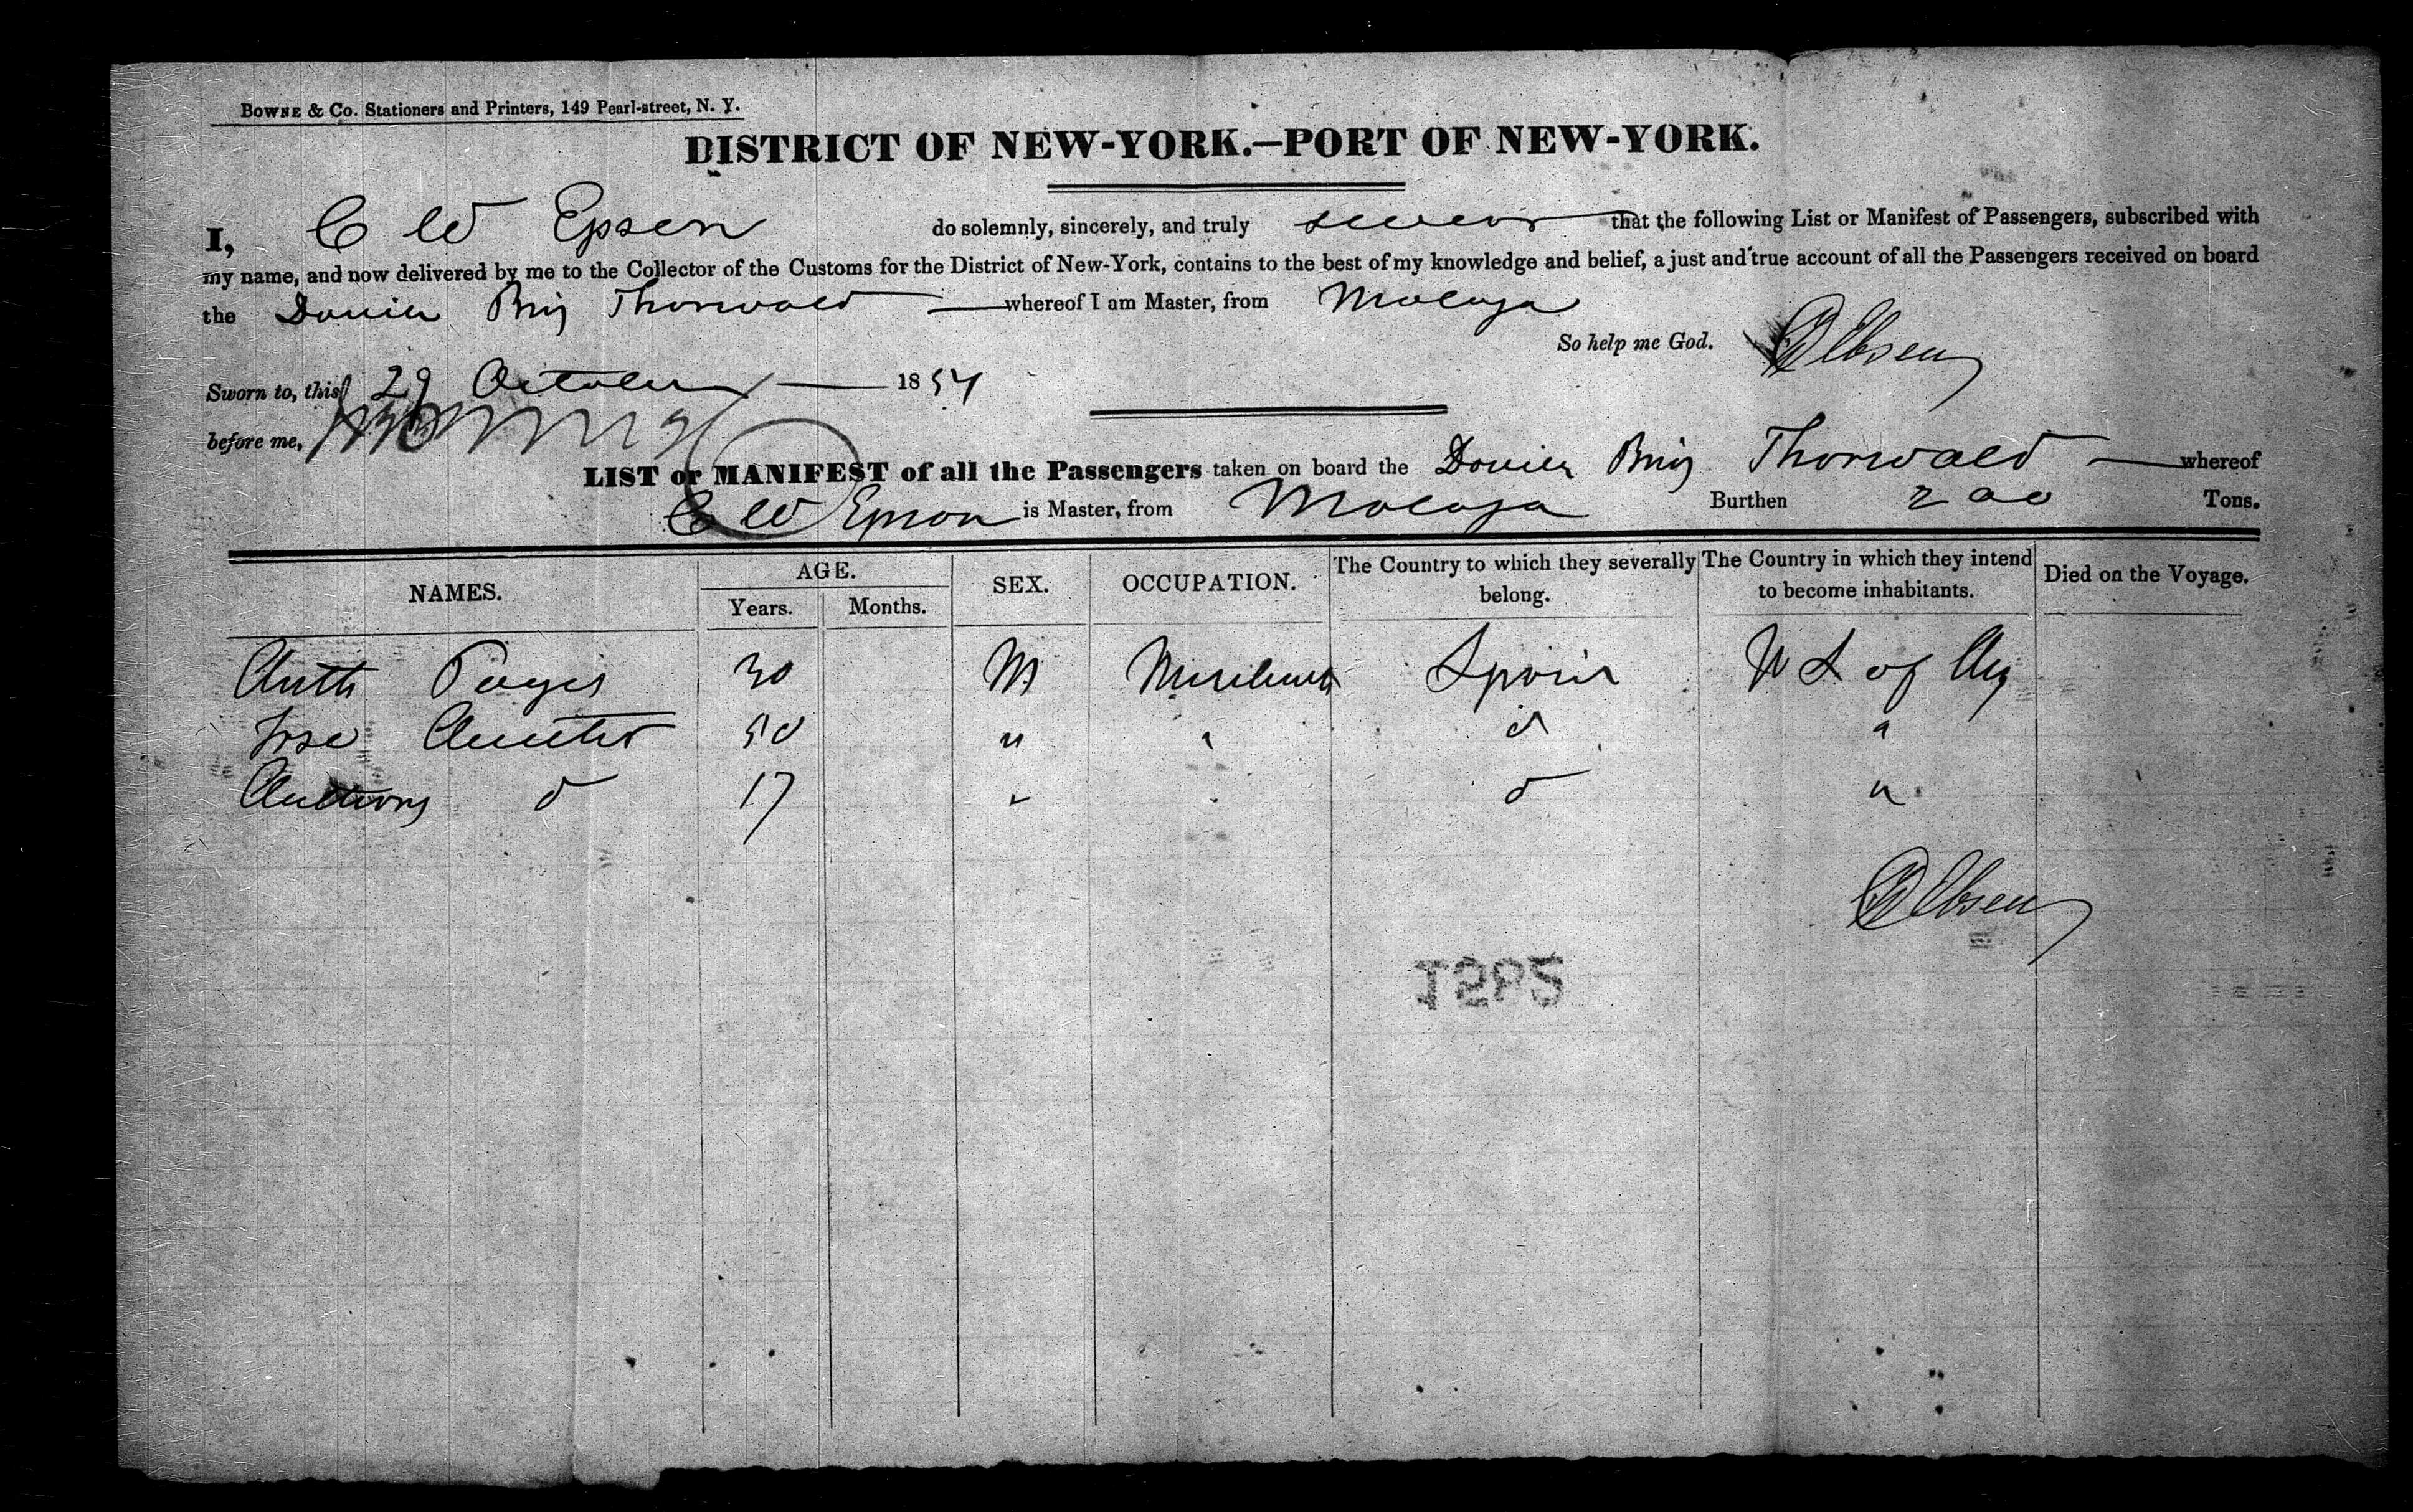 BOWNE & Co. Stationers and Printers, 149 Pearl-street, N. Y.
DISTRICT OF NEW-YORK.—PORT OF NEW-YORK.
I, C W Epsen do solemnly, sincerely, and truly swear that the following List or Manifest of Passengers, subscribed with
my name, and now delivered by me to the Collector of the Customs for the District of New-York, contains to the best of my knowledge and belief, a just and true account of all the Passengers received on board
the Danish Brig Thorwald whereof I am Master, from Malaga
So help me God. Ebsen
Sworn to, this 29 October 1854
before me,
LIST or MANIFEST of all the Passengers taken on board the Danish Brig Thorwald whereof
C W Epson is Master, from Malaga Burthen 200 Tons.
NAMES. AGE. Years. Months. SEX. OCCUPATION. The Country to which they severally belong. The Country in which they intend to become inhabitants. Died on the Voyage.
Anth Pages 30 M Merchant Spain U S of Am
Jose 50 " " d "
Anthony d 17 " " d "
Ebsen